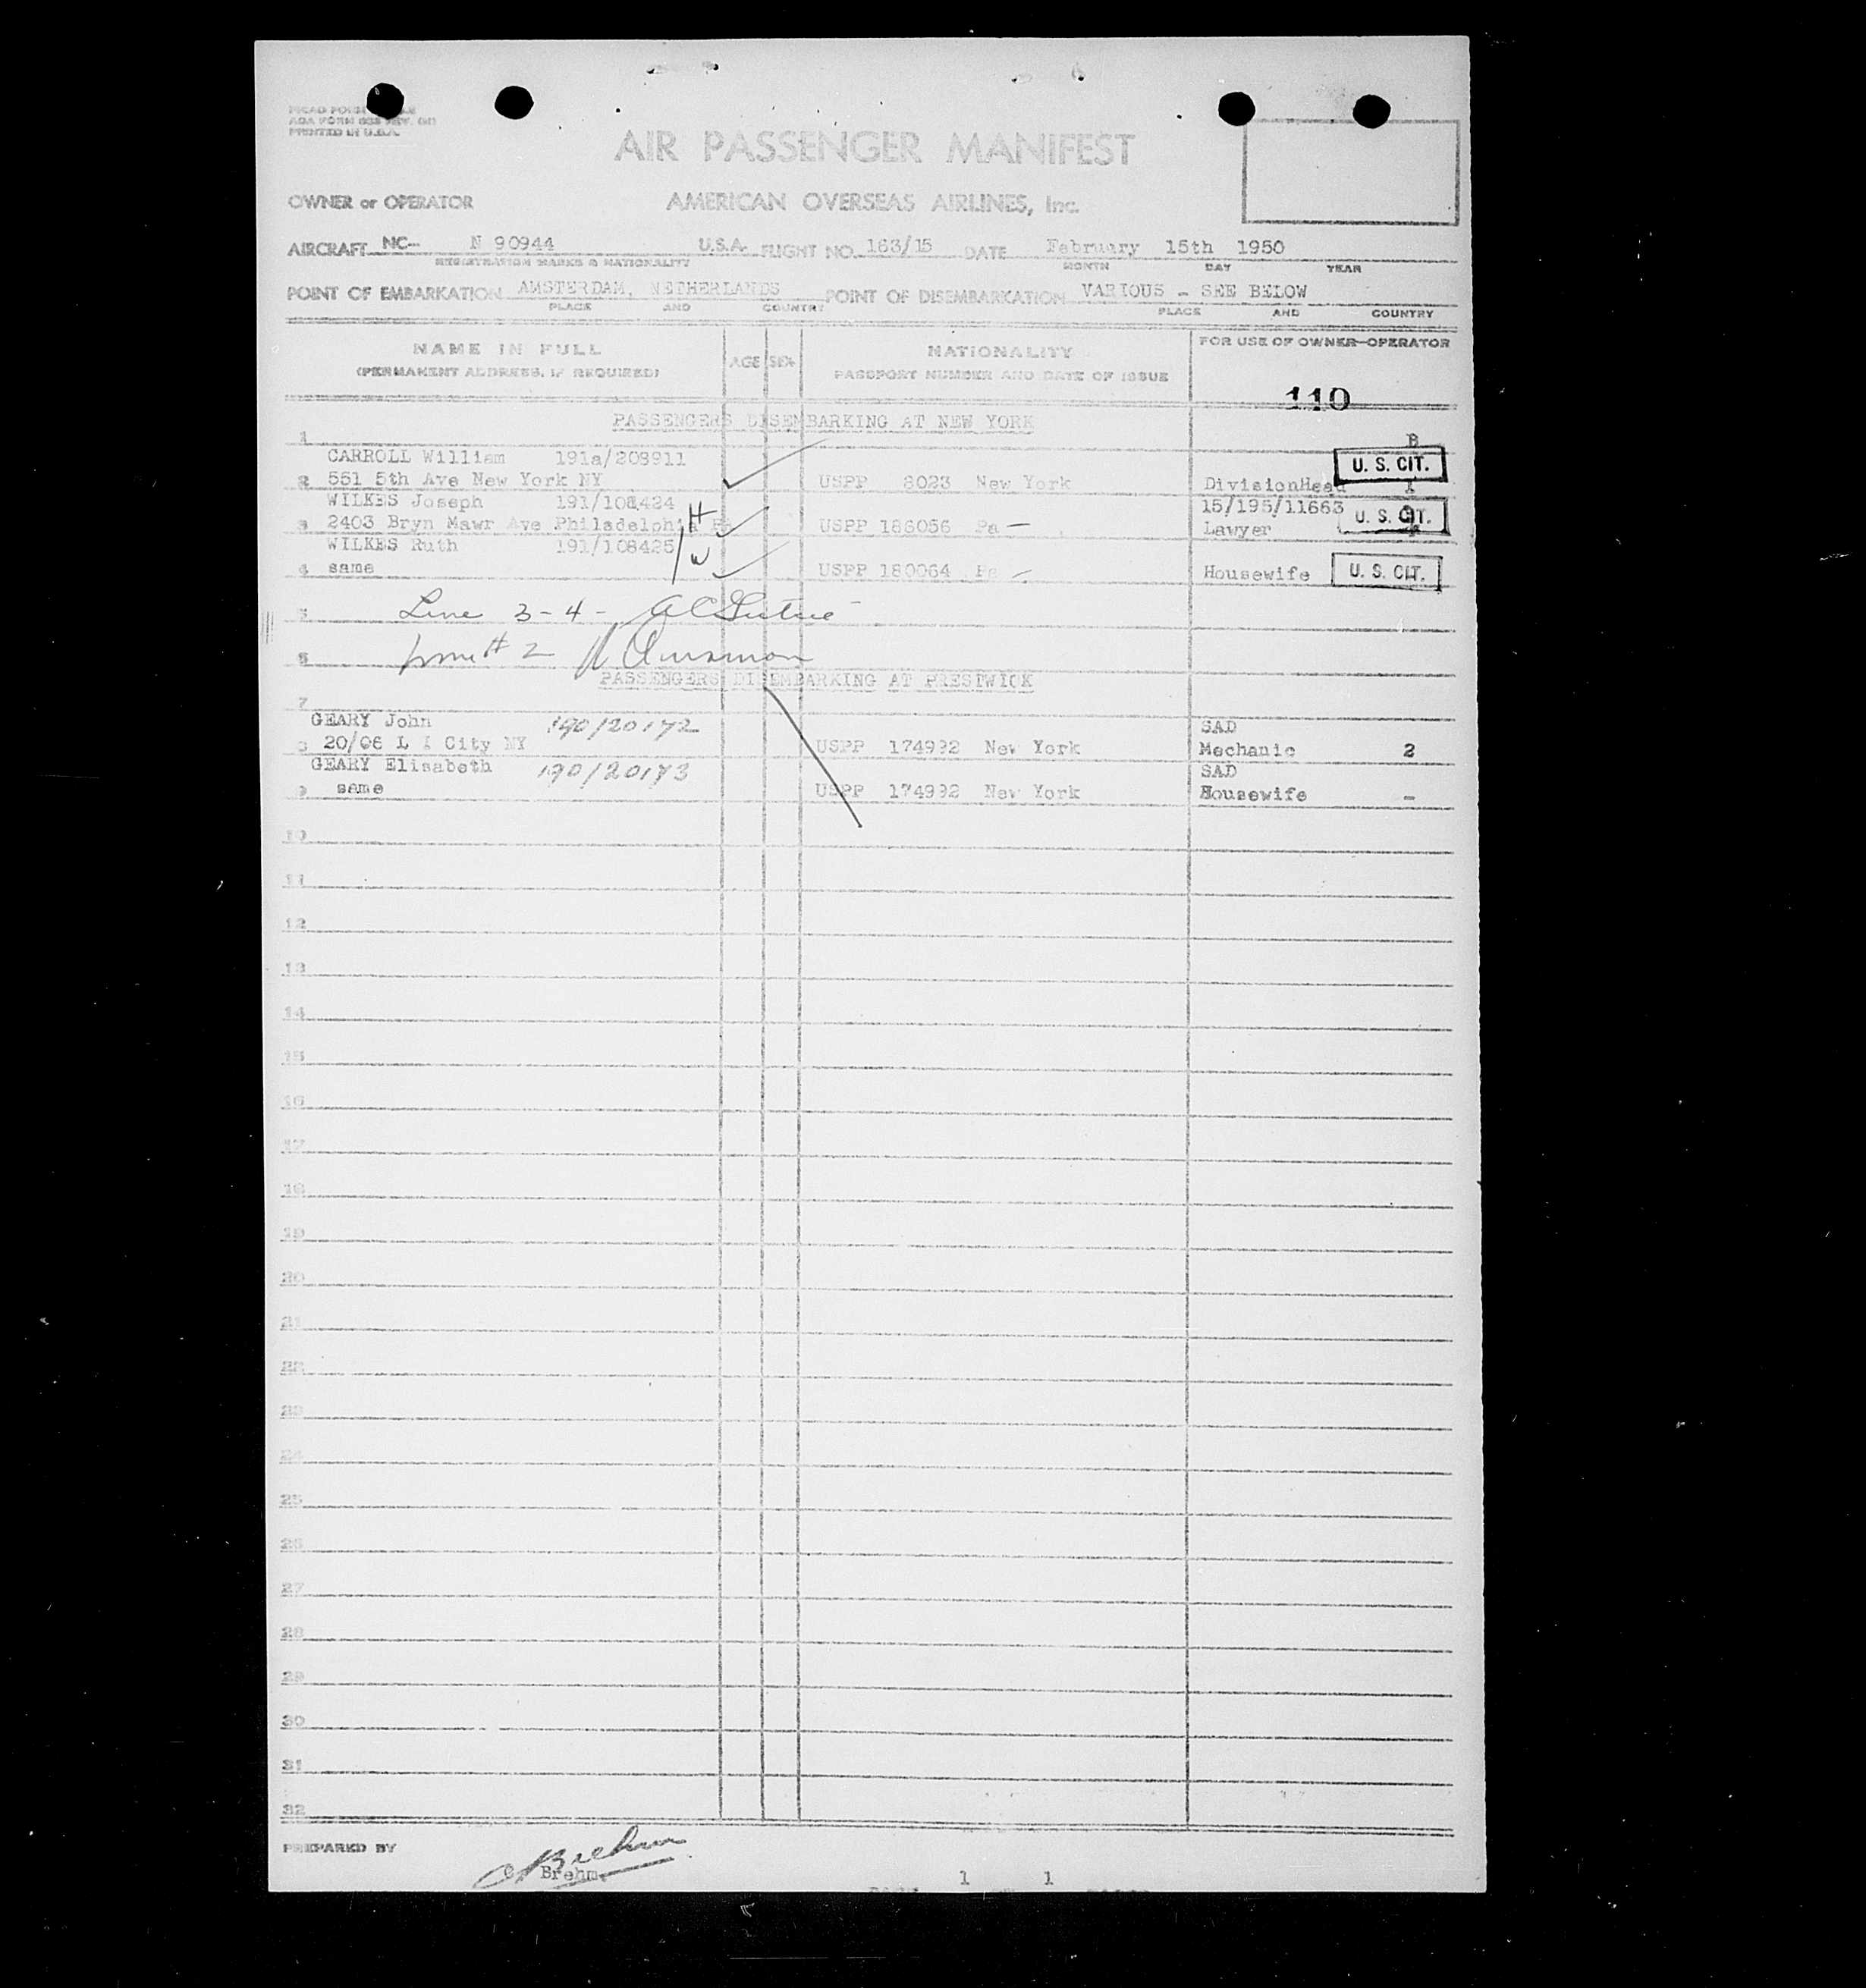 AOA FORM
PRINTED IN U.S.A.
AIR PASSENGER MANIFEST
OWNER or OPERATOR AMERICAN OVERSEAS AIRLINES, Inc.
AIRCRAFT NC- N 90944 U.S.A. FLIGHT NO. 163/15 DATE February 15th 1950
REGISTRATION MARKS & NATIONALITY MONTH DAY YEAR
POINT OF EMBARKATION AMSTERDAM, NETHERLANDS POINT OF DISEMBARKATION VARIOUS - SEE BELOW
PLACE AND COUNTRY PLACE AND COUNTRY
NAME IN FULL AGE SEX NATIONALITY FOR USE OF OWNER-OPERATOR
(PERMANENT ADDRESS, IF REQUIRED) PASSPORT NUMBER AND DATE OF ISSUE
110
PASSENGERS DISEMBARKING AT NEW YORK
1 B
CARROLL William 191a/208911 U. S. CIT.
2 551 5th Ave New York NY USPP 8023 New York DivisionHead
WILKES Joseph 191/108424 H 15/195/11663 U. S. CIT.
3 2403 Bryn Mawr Ave Philadelphia Pa USPP 186056 Pa - Lawyer
WILKES Ruth 191/108425 W
4 same USPP 180064 Pa Housewife U. S. CIT.
5 Line 3-4-
6 # 2
PASSENGERS DISEMBARKING AT PRESTWICK
7
GEARY John 190/20172 SAD
8 20/66 L I City NY USPP 174992 New York Mechanic 2
GEARY Elisabeth 190/20173 SAD
9 same USPP 174992 New York Housewife -
10
11
12
13
14
15
16
17
18
19
20
21
22
23
24
25
26
27
28
29
30
31
32
PREPARED BY C Brehm
C. Brehm.
1 1